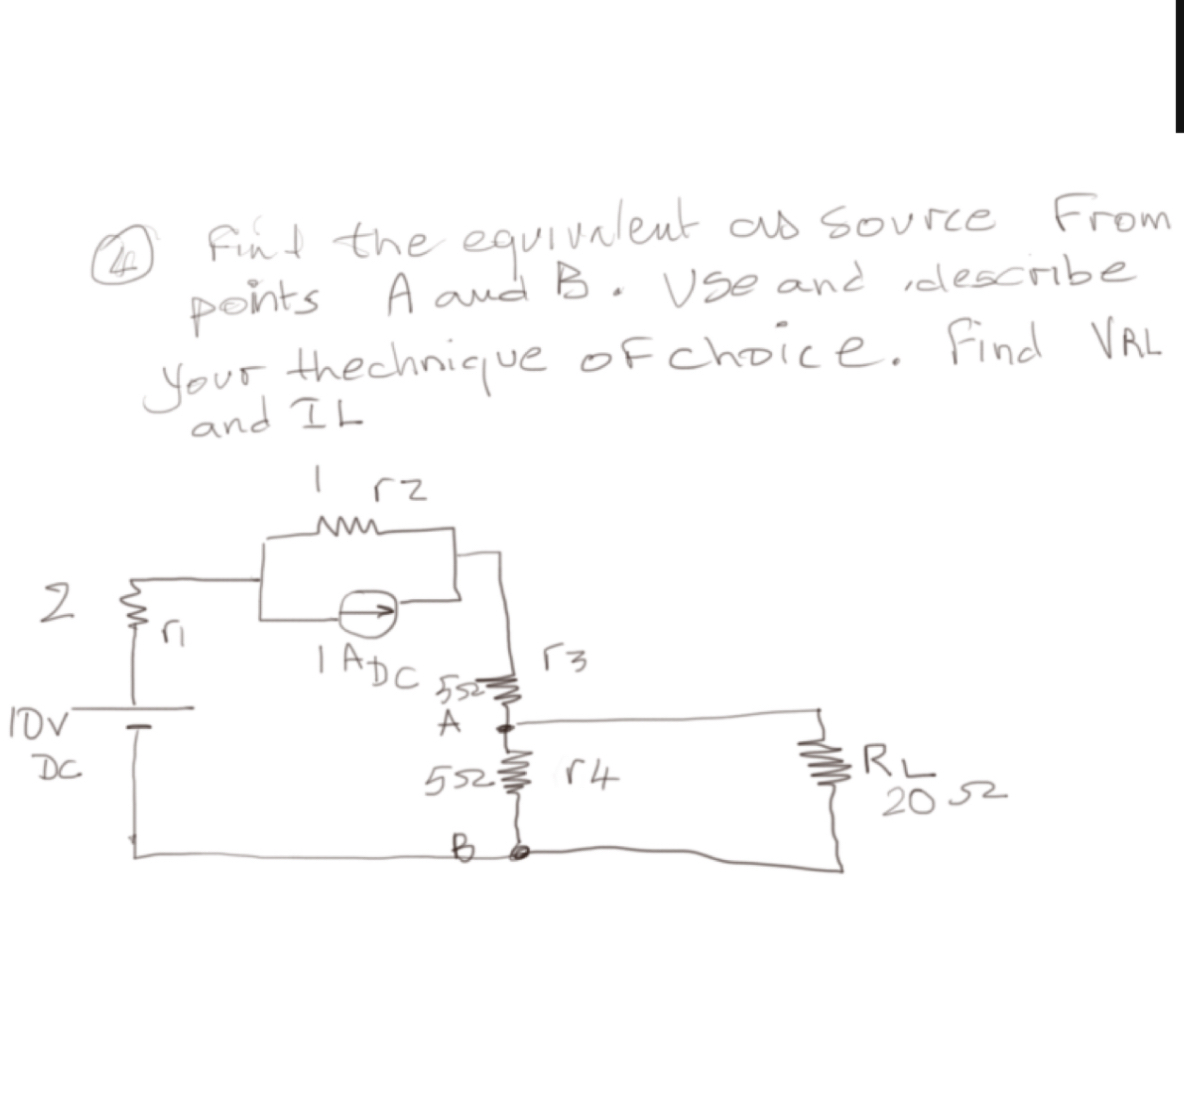 4 Find the equivalent as source From
points A and B. Use and describe
your thechnique of choice. Find VRL
and IL
1 r2
2
r1
1 ADC
r3
5Ω
A
10V
DC
5Ω r4
RL
20Ω
B